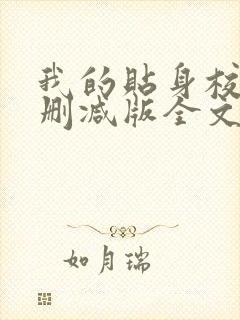 我的贴身校
删减版全文
如月瑞